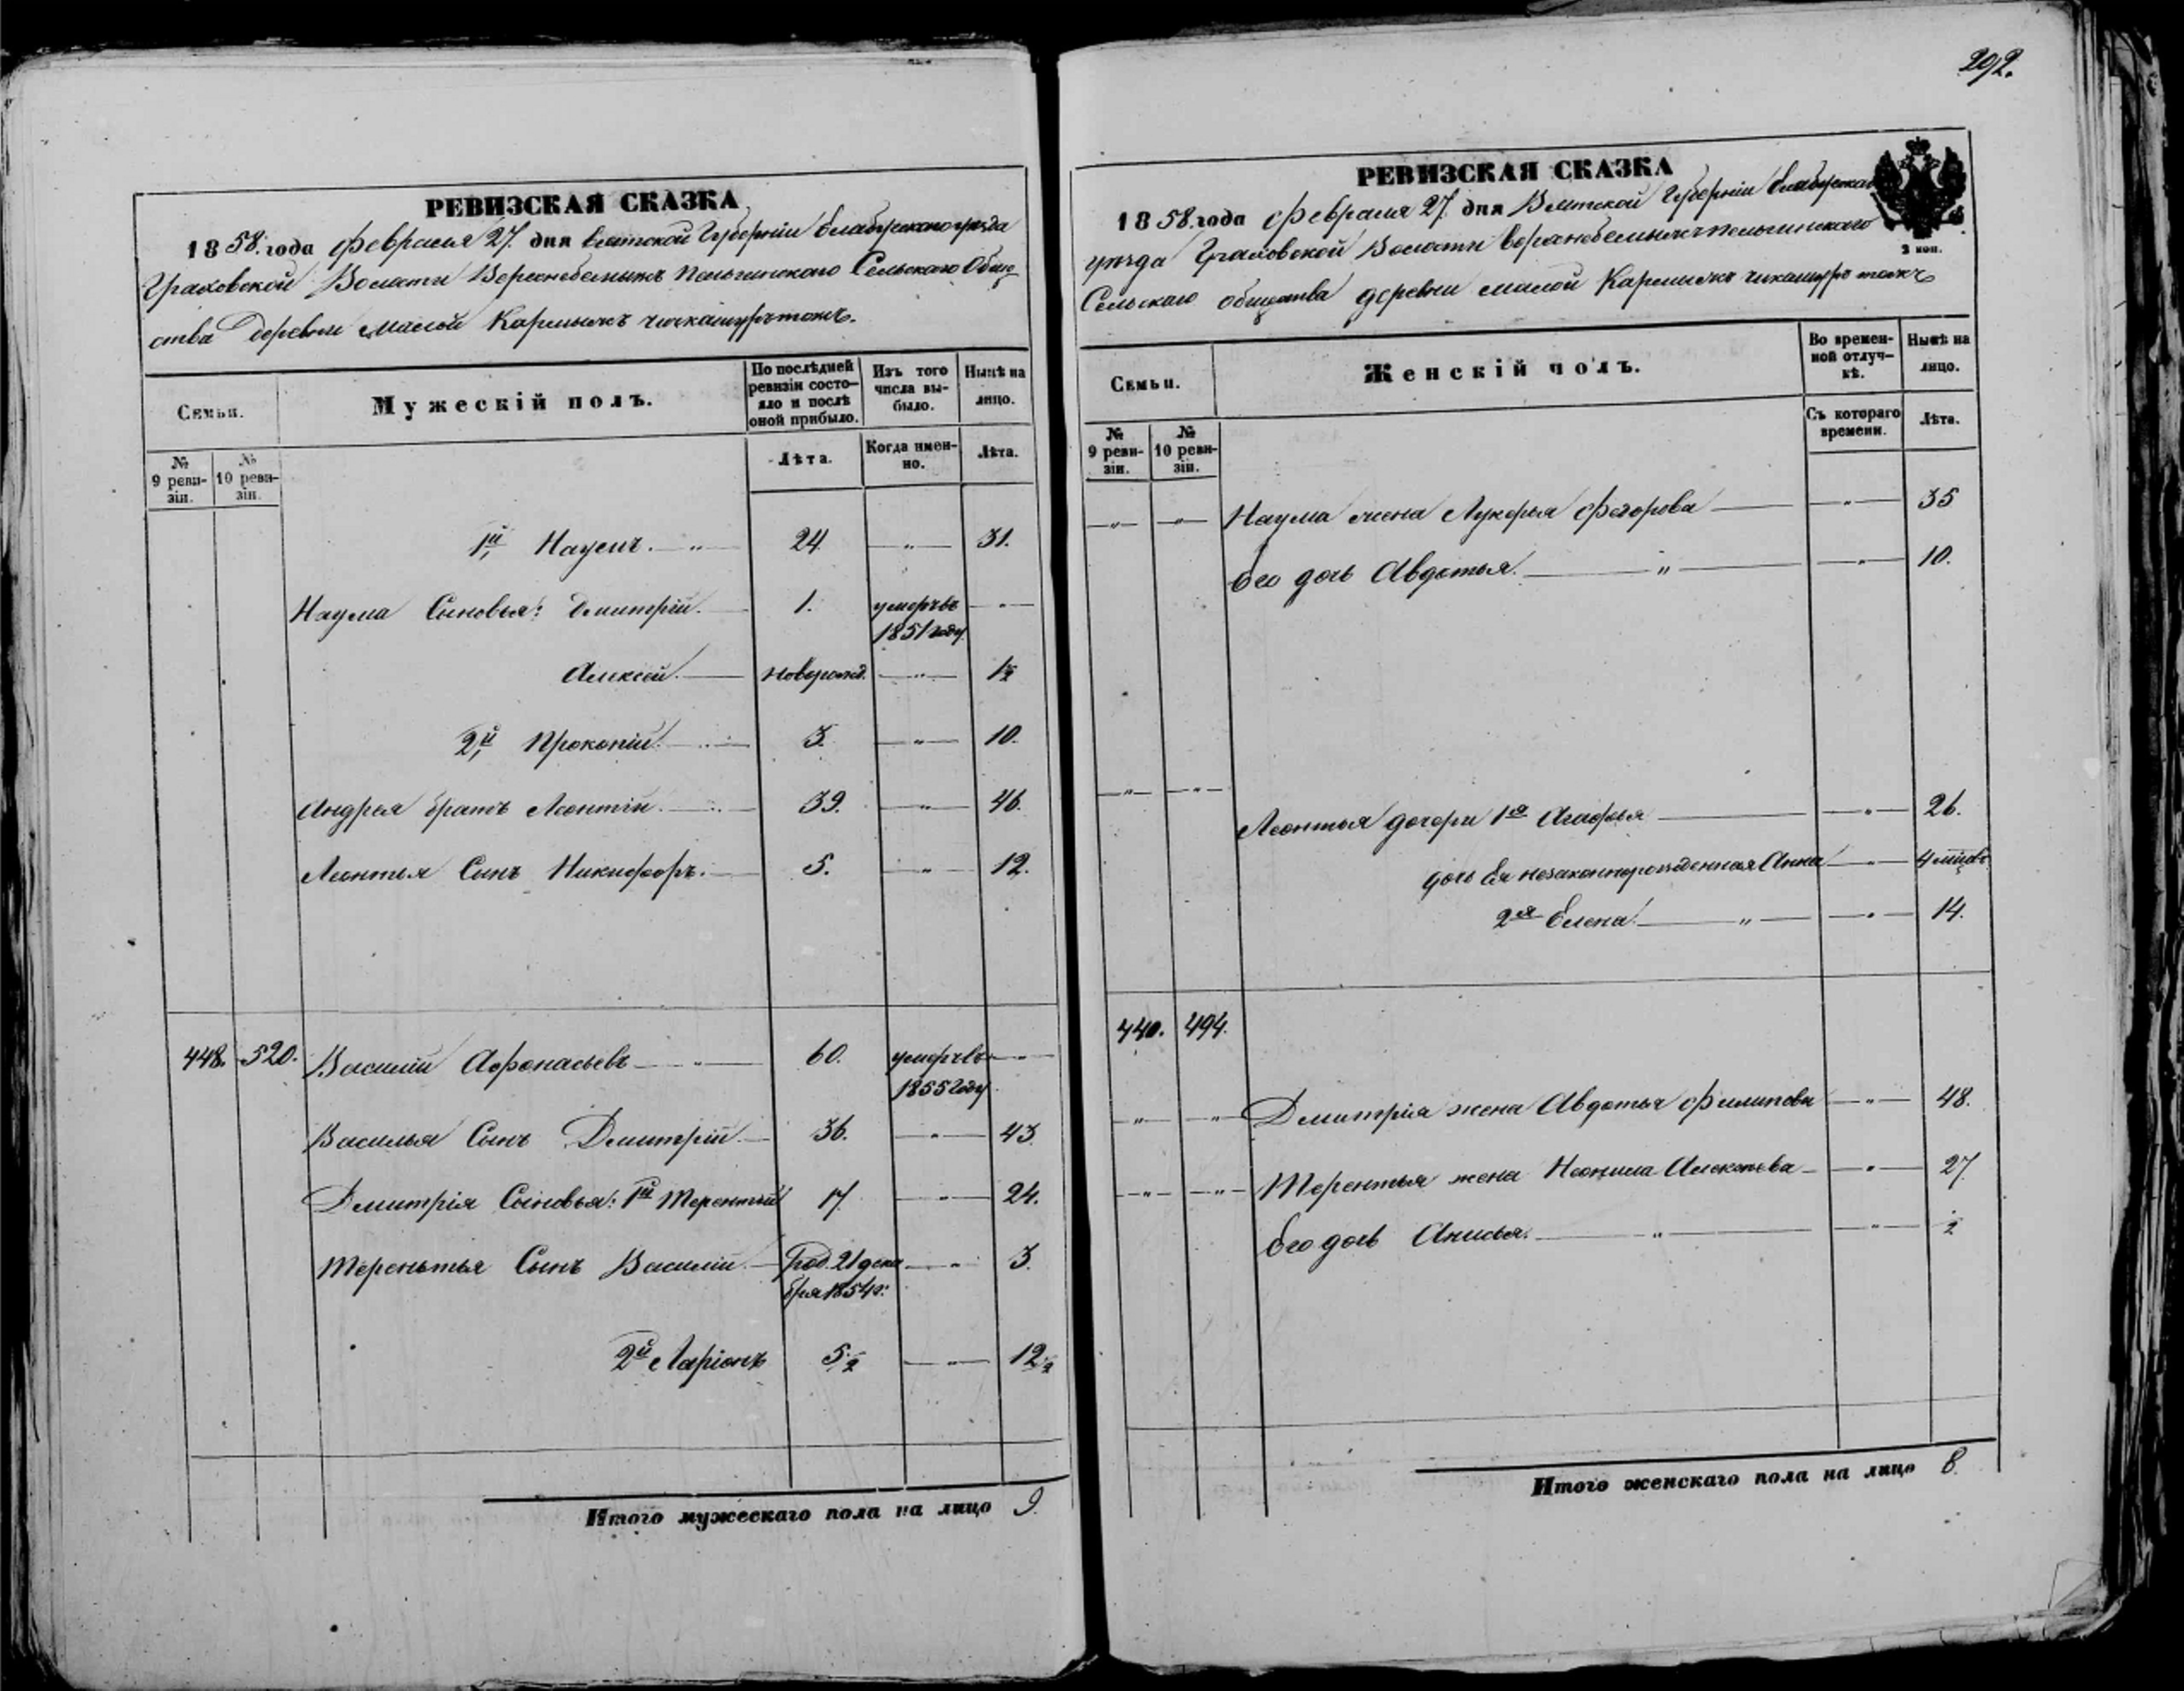 292.
РЕВИЗСКАЯ СКАЗКА
1858. года Февраля 27. дня Вятской Губерніи Елабужскаго уѣзда
Граховской Волости Верхнебемыжъ Пельгинскаго Сельскаго Общес
ства Деревни Малой Кармыжъ
Семьи.
Мужескій полъ.
По послѣдней ревизіи состояло и послѣ оной прибыло.
Изъ того числа выбыло.
Нынѣ на лицо.
№ 9 ревизіи.
№ 10 ревизіи.
Лѣта.
Когда именно.
Лѣта.
1й Наумъ. — " — 24 — " — 31.
Наума Сыновья: Дмитрій. — 1. умеръ въ 1851 году — " —
Алексѣй. — новорожд. — " — 1/2
2й Прокопій. — " — 3. — " — 10.
Андрея братъ Леонтій. — " — 39. — " — 46.
Леонтья Сынъ Никифоръ. — 5. — " — 12.
448. 520. Василій Афонасьевъ — " — 60. умеръ въ 1855 году — " —
Василья Сынъ Дмитрій. — 36. — " — 43.
Дмитрія Сыновья: 1й Терентій 17. — " — 24.
Терентья Сынъ Василій. — Род. 21 декабря 1854 г. — " — 3.
2й Ларіонъ 5 1/2 — " — 12 1/2
Итого мужескаго пола на лицо 9.
РЕВИЗСКАЯ СКАЗКА
1858. года Февраля 27. дня Вятской Губерніи Елабужскаго
уѣзда Граховской Волости Верхнебемыжъ Пельгинскаго
Сельскаго общества деревни малой Кармыжъ
2 коп.
Семьи.
Женскій полъ.
Во временной отлучкѣ.
Нынѣ на лицо.
№ 9 ревизіи.
№ 10 ревизіи.
Съ котораго времени.
Лѣта.
— " — — " — Наума жена Лукерья Федорова — — " — 35
Его дочь Авдотья. — " — — " — 10.
— " — — " —
Леонтья дочери 1я Агафья — — " — 26.
дочь Ея незаконнорожденная Анна — " — 4 мѣсяц.
2я Елена. — " — — " — 14.
440. 494.
— " — — " — Дмитрія жена Авдотья Филипова — " — 48.
— " — — " — Терентья жена Неонила Алексѣева — — " — 27.
Его дочь Анисья. — " — — " — 1/2
Итого женскаго пола на лицо 8.